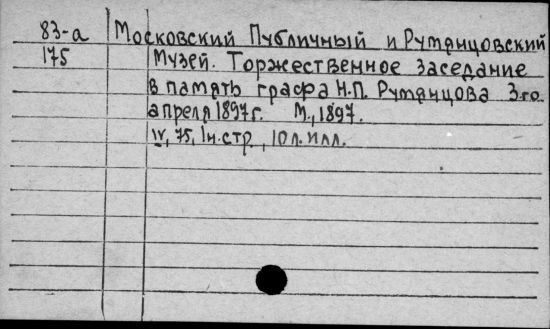 83-а Московский Публичный и Румянцовский
175 Музей. Торжественное заседание
в память графа Н.П. Румянцова 3-го
апреля 1897 г. М., 1897.
IV, 75, 1н.стр., 10 л. илл.